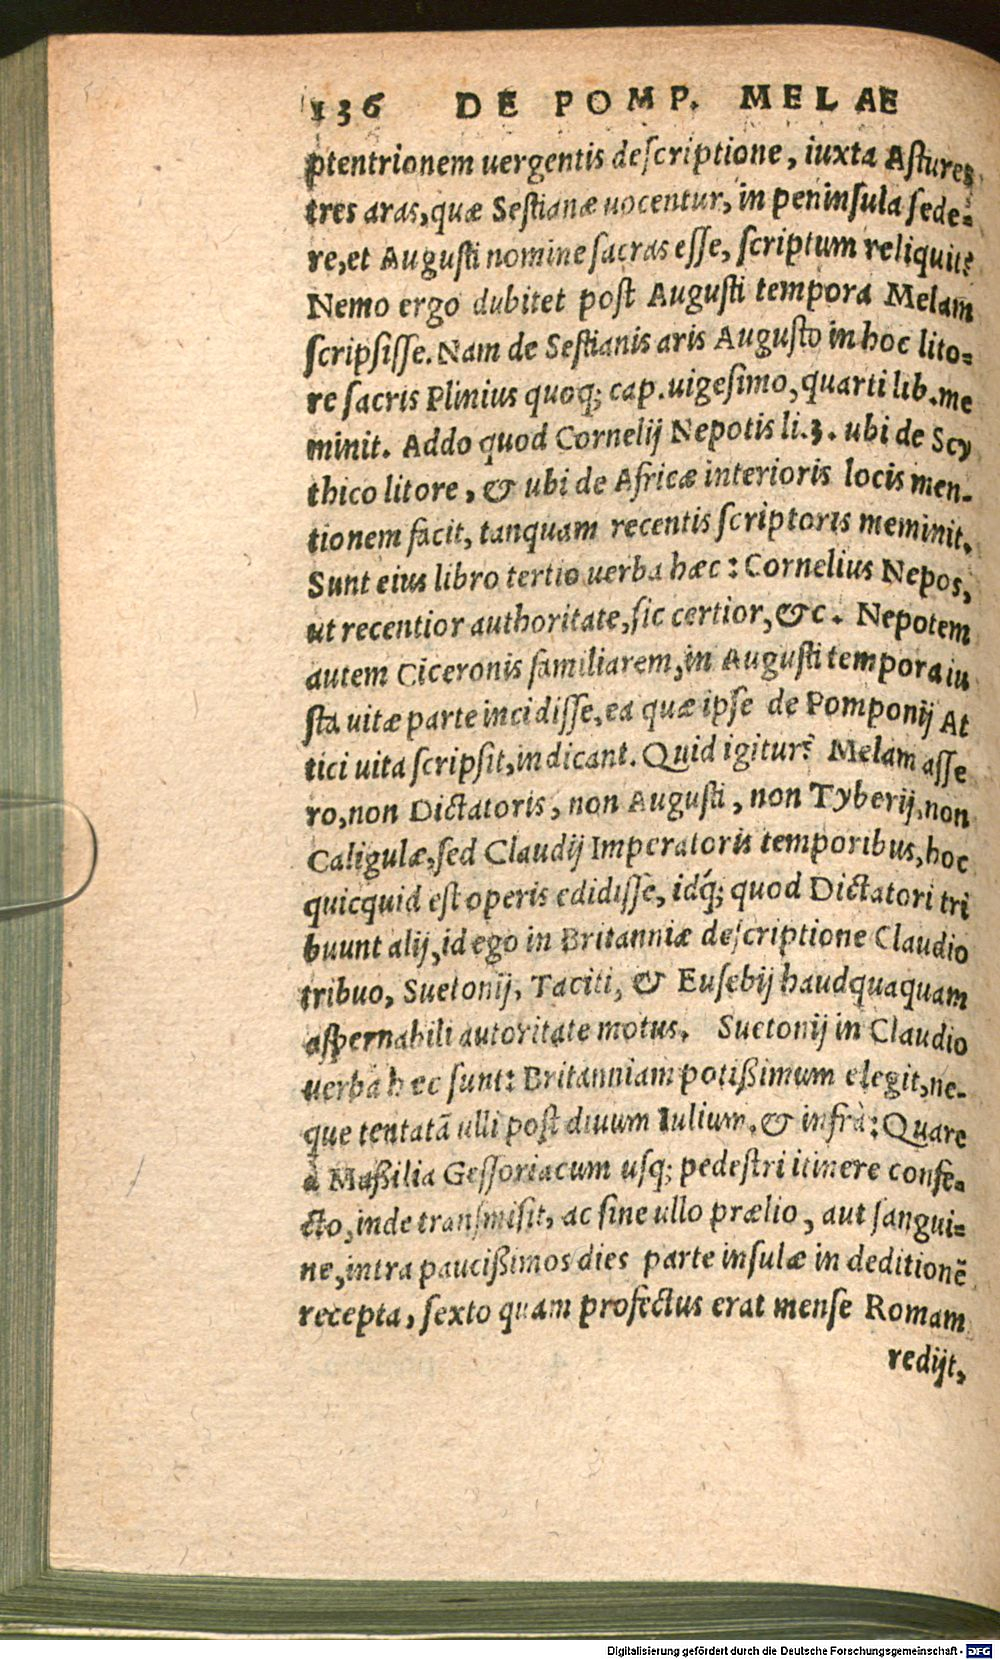 136 DE POMP. MELAE
ptentrionem uergentis deſcriptione, iuxta Aſtures
tres aras, quæ Seſtianæ uocentur, in peninſula ſede-
re, et Auguſti nomine ſacras eſſe, ſcriptum reliquit?
Nemo ergo dubitet poſt Auguſti tempora Melam
ſcripſiſſe. Nam de Seſtianis aris Auguſto in hoc lito-
re ſacris Plinius quoq; cap. uigeſimo, quarti lib. me
minit. Addo quod Cornelij Nepotis li. 3. ubi de Scy
thico litore, & ubi de Africæ interioris locis men-
tionem facit, tanquam recentis ſcriptoris meminit.
Sunt eius libro tertio uerba hæc: Cornelius Nepos,
ut recentior authoritate, ſic certior, &c. Nepotem
autem Ciceronis familiarem, in Auguſti tempora iu
ſta uitæ parte incidiſſe, ea quæ ipſe de Pomponij At
tici uita ſcripſit, indicant. Quid igitur? Melam aſſe
ro, non Dictatoris, non Auguſti, non Tyberij, non
Caligulæ, ſed Claudij Imperatoris temporibus, hoc
quicquid eſt operis edidiſſe, idq́; quod Dictatori tri
buunt alij, id ego in Britanniæ deſcriptione Claudio
tribuo, Suetonij, Taciti, & Euſebij haudquaquam
aſpernabili autoritate motus. Suetonij in Claudio
uerba hæc ſunt: Britanniam potißimum elegit, ne-
que tentatã ulli poſt diuum Iulium. & infrà: Quare
à Maßilia Geſſoriacum uſq; pedeſtri itinere confe-
cto, inde transmiſit, ac ſine ullo prælio, aut ſangui-
ne, intra paucißimos dies parte inſulæ in deditionẽ
recepta, ſexto quam profectus erat menſe Romam
redijt,
Digitalisierung gefördert durch die Deutsche Forschungsgemeinschaft - DFG